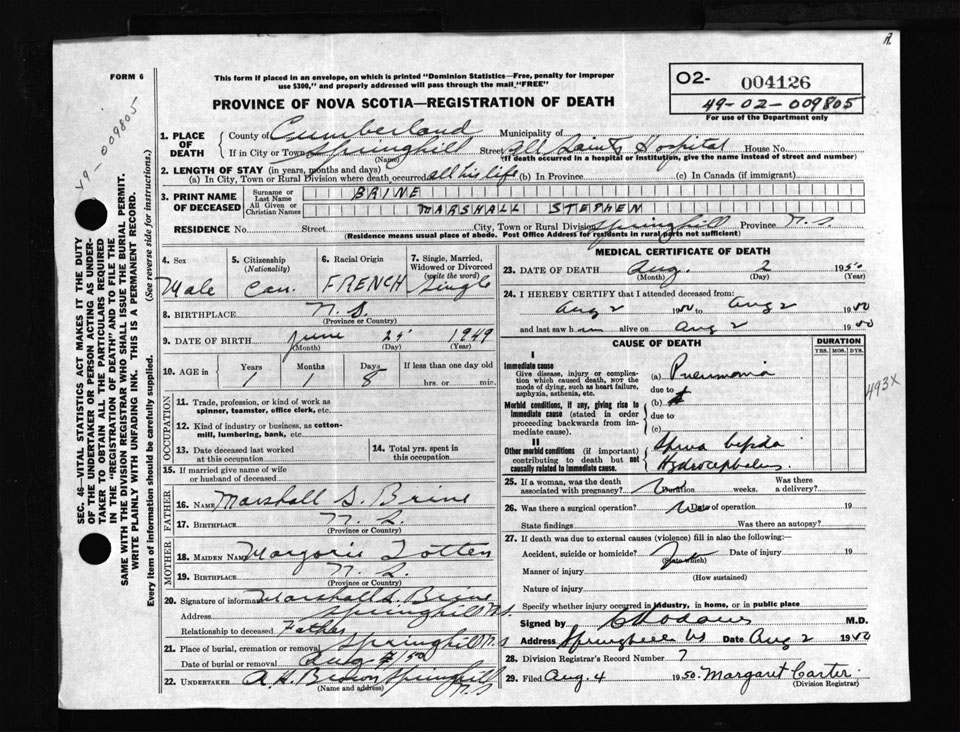 R.
FORM 6
This form if placed in an envelope, on which is printed "Dominion Statistics—Free, penalty for improper
use $300," and properly addressed will pass through the mail "FREE"
PROVINCE OF NOVA SCOTIA—REGISTRATION OF DEATH
02- 004126
49-02-009805
For use of the Department only
49-009805
SEC. 46—VITAL STATISTICS ACT MAKES IT THE DUTY
OF THE UNDERTAKER OR PERSON ACTING AS UNDER-
TAKER TO OBTAIN ALL THE PARTICULARS REQUIRED
IN THE "REGISTRATION OF DEATH" AND TO FILE THE
SAME WITH THE DIVISION REGISTRAR WHO SHALL ISSUE THE BURIAL PERMIT.
WRITE PLAINLY WITH UNFADING INK. THIS IS A PERMANENT RECORD.
Every item of information should be carefully supplied. (See reverse side for instructions.)
1. PLACE OF DEATH County of Cumberland Municipality of
If in City or Town Springhill Street All Saints Hospital House No.
(Name) (If death occurred in a hospital or institution, give the name instead of street and number)
2. LENGTH OF STAY (in years, months and days)
(a) In City, Town or Rural Division where death occurred all his life (b) In Province (c) In Canada (if immigrant)
3. PRINT NAME OF DECEASED Surname or Last Name BRINE
All Given or Christian Names MARSHALL STEPHEN
RESIDENCE No. Street City, Town or Rural Division Springhill Province N.S.
(Residence means usual place of abode. Post Office Address for residents in rural parts not sufficient)
4. Sex 5. Citizenship (Nationality) 6. Racial Origin 7. Single, Married, Widowed or Divorced (write the word)
Male Can. FRENCH Single
8. BIRTHPLACE N.S.
(Province or Country)
9. DATE OF BIRTH June 25 1949
(Month) (Day) (Year)
10. AGE in Years Months Days If less than one day old
1 1 8 hrs. or min.
OCCUPATION
11. Trade, profession, or kind of work as
spinner, teamster, office clerk, etc.
12. Kind of industry or business, as cotton-
mill, lumbering, bank, etc.
13. Date deceased last worked at this occupation 14. Total yrs. spent in this occupation
15. If married give name of wife
or husband of deceased
FATHER
16. Name Marshall S. Brine
17. Birthplace N.S.
(Province or Country)
MOTHER
18. Maiden Name Marjorie Totten
19. Birthplace N.S.
(Province or Country)
20. Signature of informant Marshall S. Brine
Address Springhill N.S.
Relationship to deceased Father
21. Place of burial, cremation or removal Springhill N.S
Date of burial or removal Aug 50
22. Undertaker A. H. Brown Springhill N.S
(Name and address)
MEDICAL CERTIFICATE OF DEATH
23. DATE OF DEATH Aug. 2 1950
(Month) (Day) (Year)
24. I HEREBY CERTIFY that I attended deceased from:
Aug 2 1950 to Aug 2 1950
and last saw him alive on Aug 2 1950
CAUSE OF DEATH DURATION
YRS. MOS. DYS.
I
Immediate cause
Give disease, injury or complica-
tion which caused death, NOT the
mode of dying, such as heart failure,
asphyxia, asthenia, etc.
(a) Pneumonia
due to
Morbid conditions, if any, giving rise to
immediate cause (stated in order
proceeding backwards from im-
mediate cause).
(b)
due to
(c)
493X
II
Other morbid conditions (if important)
contributing to death but not
causally related to immediate cause.
Spina bifida
Hydrocephalus.
25. If a woman, was the death associated with pregnancy? Duration weeks. Was there a delivery?
26. Was there a surgical operation? No Date of operation 19
State findings Was there an autopsy?
27. If death was due to external causes (violence) fill in also the following:—
Accident, suicide or homicide? Date of injury 19
(State which)
Manner of injury
(How sustained)
Nature of injury
Specify whether injury occurred in industry, in home, or in public place
Signed by M.D.
Address Springhill NS Date Aug 2 1950
28. Division Registrar's Record Number 7
29. Filed Aug. 4 1950. Margaret Carter
(Division Registrar)